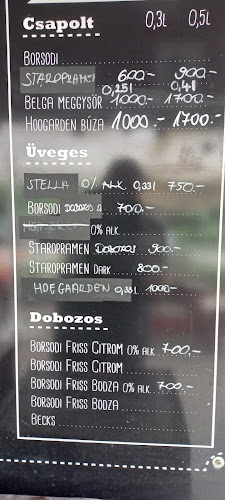 Csapolt 0,3L 0,5L
BORSODI
STAROPRAMEN 600.- 900.-
0,25l 0,4l
BELGA MEGGYSÖR 1000.- 1700.-
HOOGARDEN BÚZA 1000.- 1700.-
Üveges
STELLA 0% ALK. 0,33l 750.-
BORSODI DOBOZOS 700.-
0% ALK
STAROPRAMEN DOBOZOS 900.-
STAROPRAMEN DARK 800.-
HOEGAARDEN 0,33l 1000.-
Dobozos
BORSODI FRISS CITROM 0% ALK 700,-
BORSODI FRISS CITROM
BORSODI FRISS BODZA 0% ALK 700.-
BORSODI FRISS BODZA
BECKS